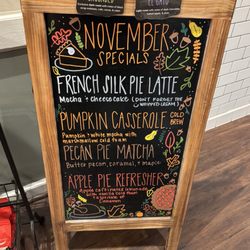 NOVEMBER
SPECIALS
FRENCH SILK PIE LATTE
Mocha + cheesecake (DON'T FORGET THE
WHIPPED CREAM!)
PUMPKIN CASSEROLE
COLD
BREW
Pumpkin + white mocha with
marshmallow cold foam
PECAN PIE MATCHA
Butter pecan, caramel, + maple
APPLE PIE REFRESHER
Apple caffeinated lemonade
with vanilla cold foam
+ a sprinkle of
cinnamon